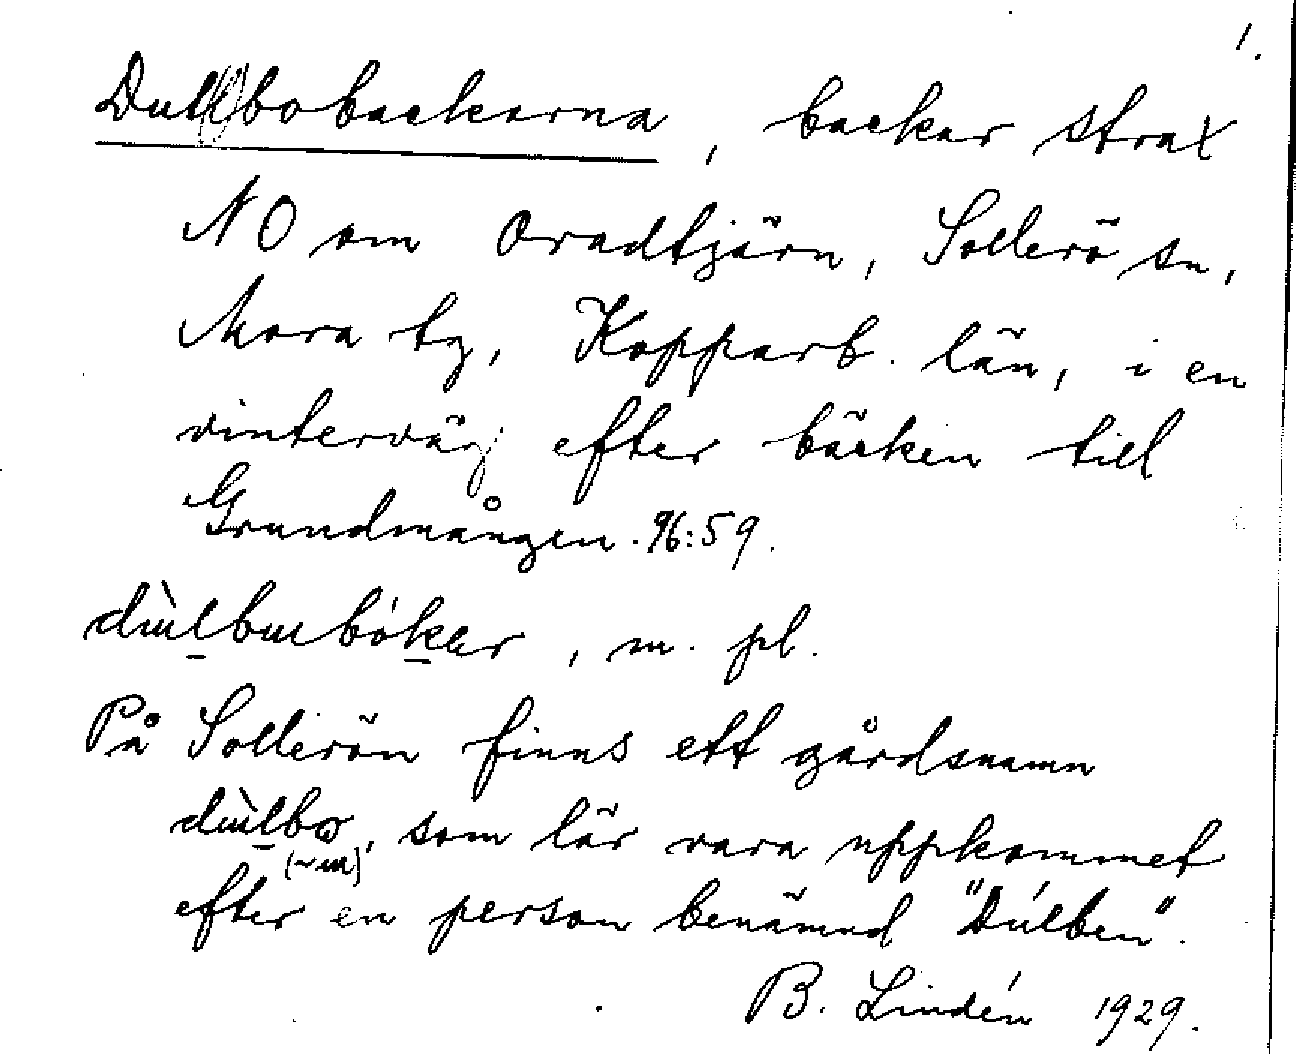 1.
Dullbobackarna, backar strax
NO om Oradtjärn, Sollerö sn,
Mora tg, Kopparb. län, i en
vinterväg efter bäcken till
Grundmången. 96:59.
dùlbɯbókɐr, m. pl.
På Sollerön finns ett gårdsnamn
dùlbo, som lär vara uppkommet
(~ɯ)
efter en person benämnd "Dúlben".
B. Lindén 1929.